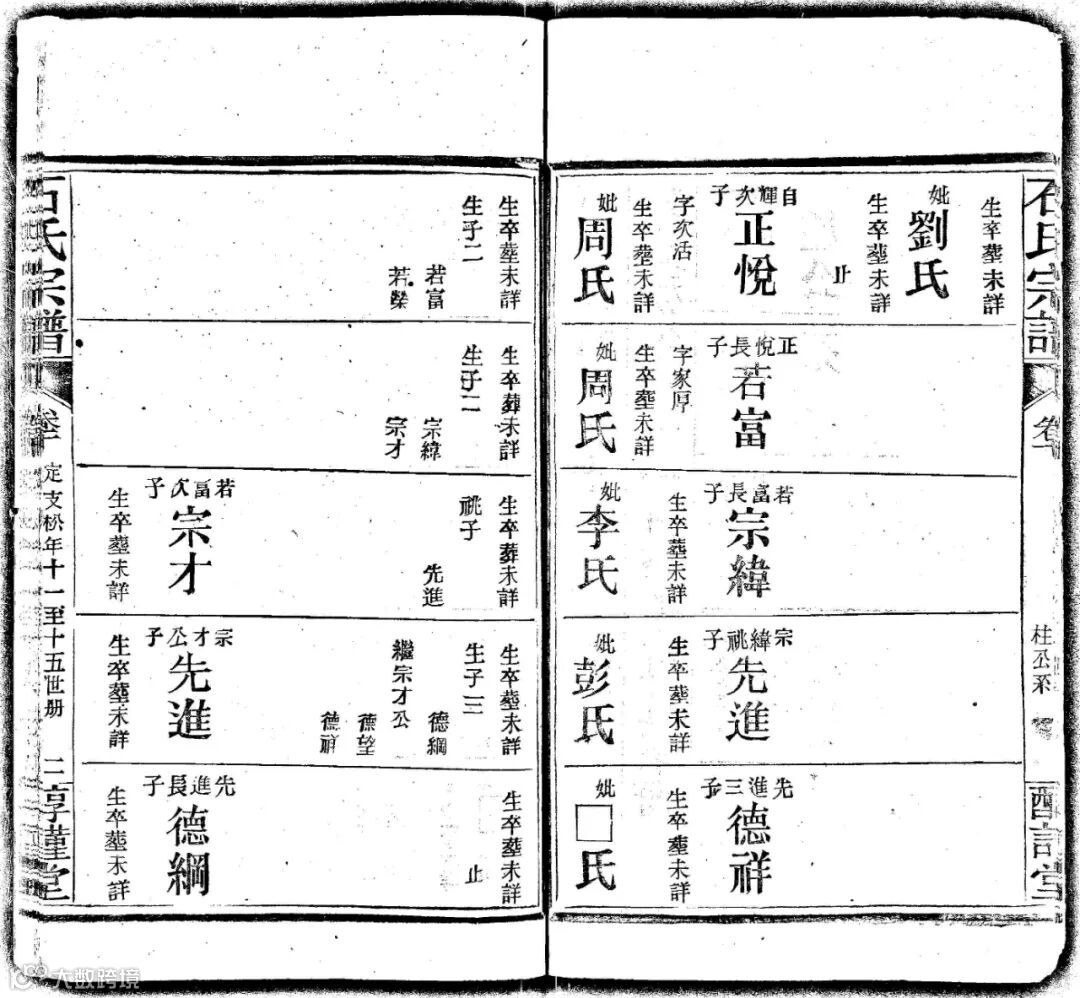 石氏宗譜
卷
桂公系
堂
生卒塟未詳
妣劉氏
生卒塟未詳
止
自輝次子
正悅
字次活
生卒塟未詳
妣周氏
正悅長子
若富
字家厚
生卒塟未詳
妣周氏
若富長子
宗緯
生卒塟未詳
妣李氏
宗緯祧子
先進
生卒塟未詳
妣彭氏
先進三子
德祥
生卒塟未詳
妣□氏
生卒塟未詳
生子二
若富
若榮
生卒葬未詳
生子二
宗緯
宗才
生卒葬未詳
祧子
先進
若富次子
宗才
生卒塟未詳
生卒塟未詳
生子三
德綱
繼宗才公
德望
德祥
宗才公子
先進
生卒塟未詳
生卒塟未詳
止
先進長子
德綱
生卒塟未詳
石氏宗譜
定支松年十一至十五世册
二
堂
大数跨境